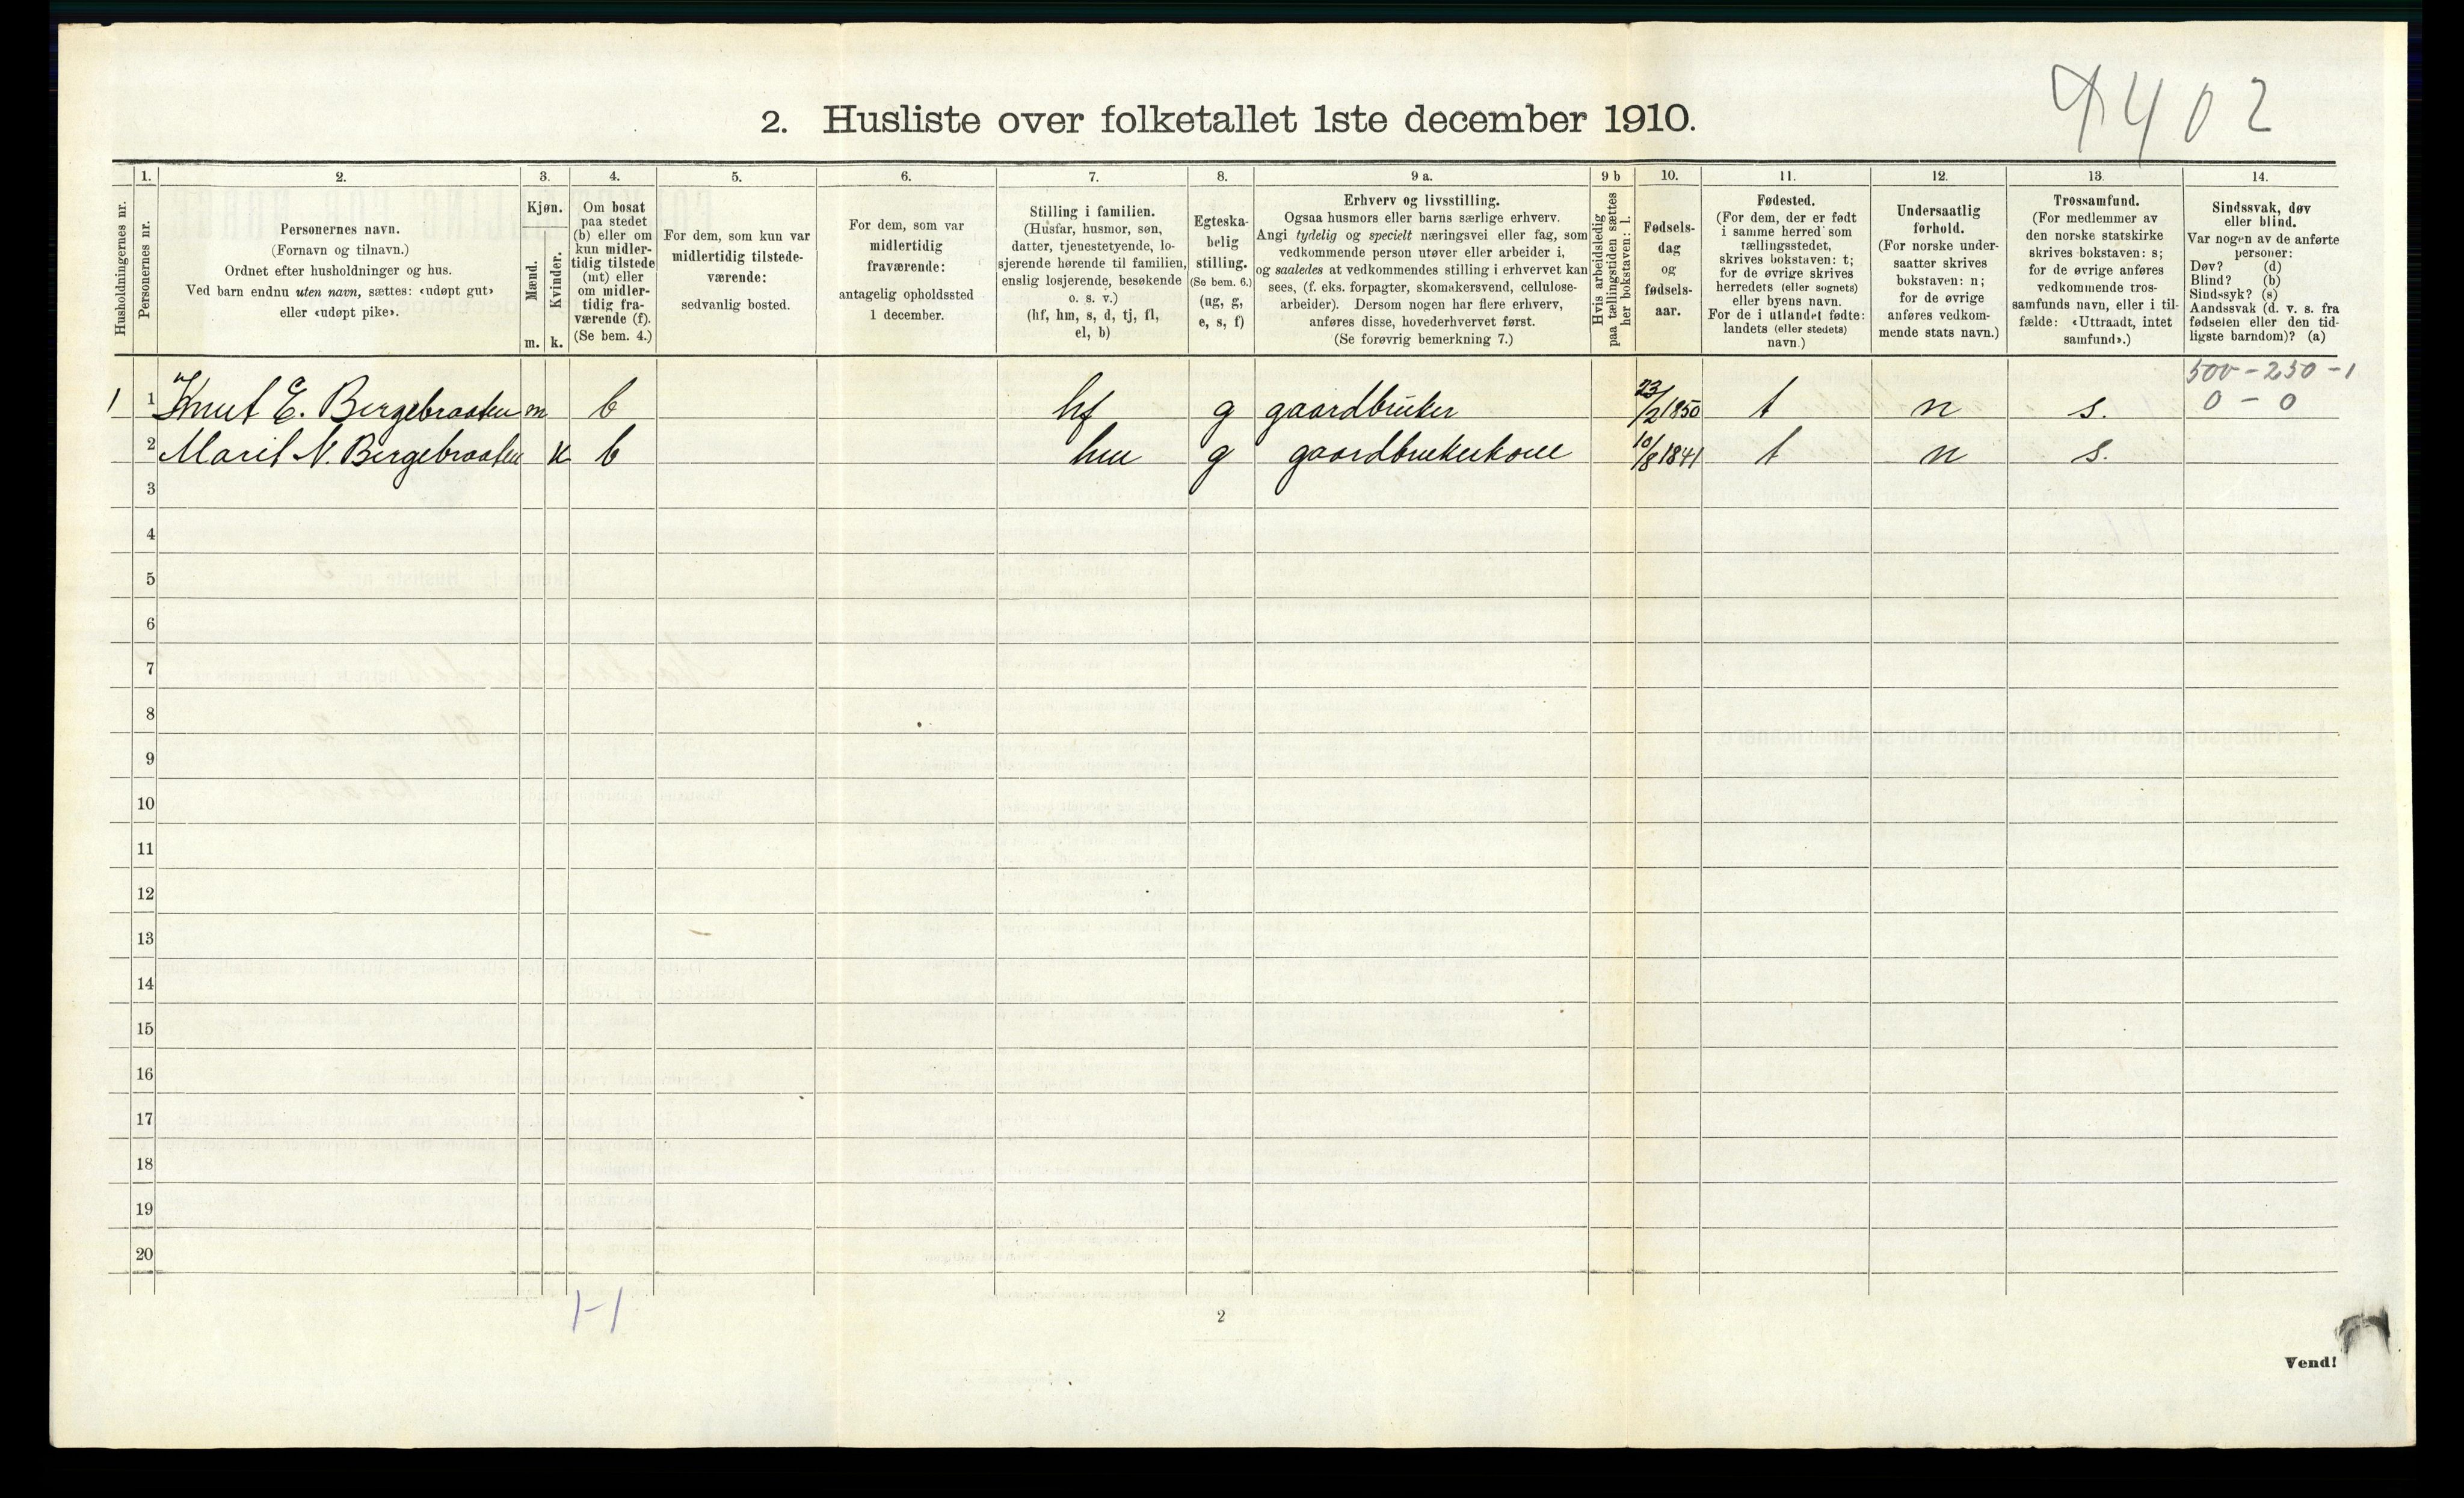 4402
2. Husliste over folketallet 1ste december 1910.
Husholdningernes nr.
1.
Personernes nr.
2.
Personernes navn.
(Fornavn og tilnavn.)
Ordnet efter husholdninger og hus.
Ved barn endnu uten navn, sættes: «udøpt gut»
eller «udøpt pike».
3.
Kjøn.
Mænd.
Kvinder.
m. k.
4.
Om bosat
paa stedet
(b) eller om
kun midler-
tidig tilstede
(mt) eller
om midler-
tidig fra-
værende (f).
(Se bem. 4.)
5.
For dem, som kun var
midlertidig tilstede-
værende:
sedvanlig bosted.
6.
For dem, som var
midlertidig
fraværende:
antagelig opholdssted
1 december.
7.
Stilling i familien.
(Husfar, husmor, søn,
datter, tjenestetyende, lo-
sjerende hørende til familien,
enslig losjerende, besøkende
o. s. v.)
(hf, hm, s, d, tj, fl,
el, b)
8.
Egteska-
belig
stilling.
(Se bem. 6.)
(ug, g,
e, s, f)
9 a.
Erhverv og livsstilling.
Ogsaa husmors eller barns særlige erhverv.
Angi tydelig og specielt næringsvei eller fag, som
vedkommende person utøver eller arbeider i,
og saaledes at vedkommendes stilling i erhvervet kan
sees, (f. eks. forpagter, skomakersvend, cellulose-
arbeider). Dersom nogen har flere erhverv,
anføres disse, hovederhvervet først.
(Se forøvrig bemerkning 7.)
9 b
Hvis arbeidsledig
paa tællingstiden sættes
her bokstaven: l.
10.
Fødsels-
dag
og
fødsels-
aar.
11.
Fødested.
(For dem, der er født
i samme herred som
tællingsstedet,
skrives bokstaven: t;
for de øvrige skrives
herredets (eller sognets)
eller byens navn.
For de i utlandet fødte:
landets (eller stedets)
navn.)
12.
Undersaatlig
forhold.
(For norske under-
saatter skrives
bokstaven: n;
for de øvrige
anføres vedkom-
mende stats navn.)
13.
Trossamfund.
(For medlemmer av
den norske statskirke
skrives bokstaven: s;
for de øvrige anføres
vedkommende tros-
samfunds navn, eller i til-
fælde: «Uttraadt, intet
samfund».)
14.
Sindssvak, døv
eller blind.
Var nogen av de anførte
personer:
Døv? (d)
Blind? (b)
Sindssyk? (s)
Aandssvak (d. v. s. fra
fødselen eller den tid-
ligste barndom)? (a)
500 - 250 - 1
0 - 0
1 1 Knut E. Bergebraaten m b hf g gaardbruker 23/2 1850 t n s.
2 Marit N. Bergebraaten k b hm g gaardbrukerkone 10/8 1841 t n s.
3
4
5
6
7
8
9
10
11
12
13
14
15
16
17
18
19
20
1-1
2
Vend!